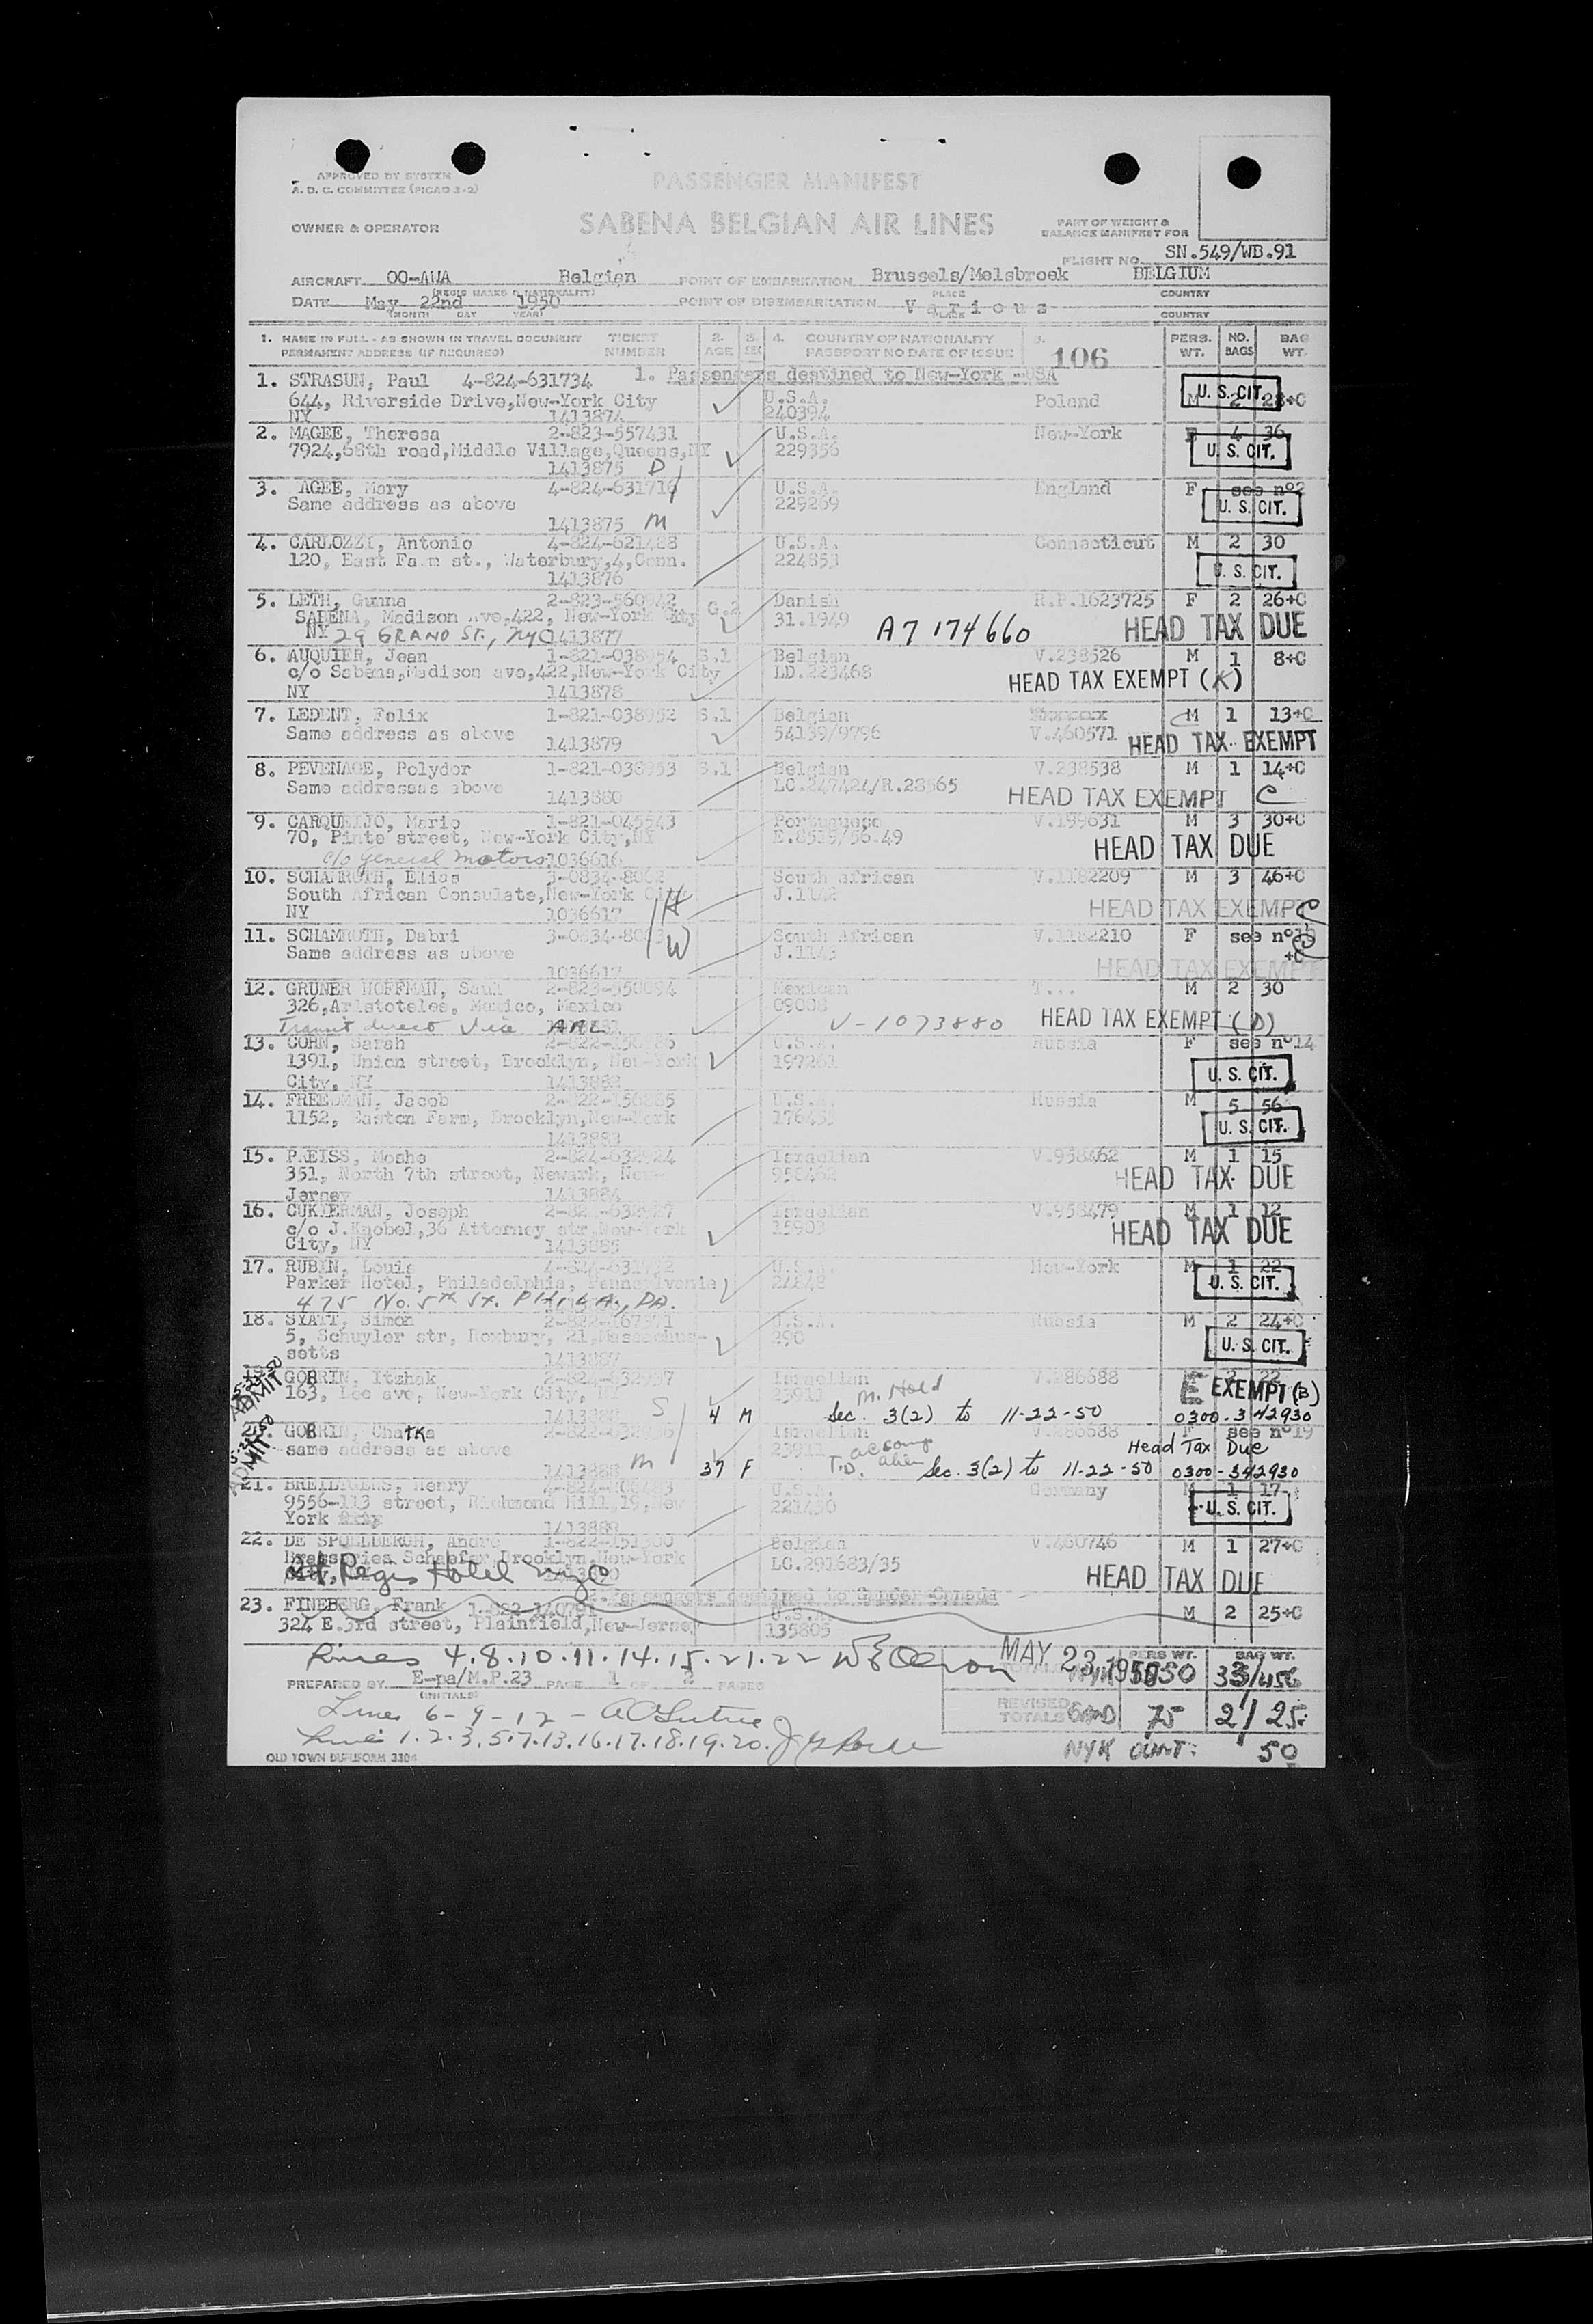 APPROVED BY SYSTEM
A. D. C. COMMITTEE (PICAO 3-2)
PASSENGER MANIFEST
OWNER & OPERATOR
SABENA BELGIAN AIR LINES
PART OF WEIGHT &
BALANCE MANIFEST FOR
FLIGHT NO. SN.549/WB.91
AIRCRAFT OO-AWA Belgian POINT OF EMBARKATION Brussels/Melsbroek BELGIUM
(REGIS MARKS & NATIONALITY) PLACE COUNTRY
DATE May 22nd 1950 POINT OF DISEMBARKATION Various
(MONTH DAY YEAR) PLACE COUNTRY
1. NAME IN FULL - AS SHOWN IN TRAVEL DOCUMENT TICKET 2. 3. 4. COUNTRY OF NATIONALITY 5. PERS. NO. BAG
PERMANENT ADDRESS (IF REQUIRED) NUMBER AGE SEX PASSPORT NO DATE OF ISSUE 106 WT. BAGS WT.
1. Passengers destined to New-York -USA
1. STRASUN, Paul 4-824-631734
644, Riverside Drive, New-York City U.S.A. Poland M 2 28+C
NY 1413874 240394 U. S. CIT.
2. MAGEE, Theresa 2-823-557431 U.S.A. New-York F 4 36
7924,68th road,Middle Village,Queens,NY 229356 U. S. CIT.
1413875 D
3. AGEE, Mary 4-824-631716 U.S.A. England F see n°2
Same address as above 229269 U. S. CIT.
1413875 M
4. CARLOZZI, Antonio 4-824-621488 U.S.A. Connecticut M 2 30
120, East Farm st., Waterbury,4,Conn. 224853 U. S. CIT.
1413876
5. LETH, Gunna G.2 Danish R.P.1623725 F 2 26+C
SABENA, Madison Ave,422, New-York City 31.1949 A7 174660 HEAD TAX DUE
NY 29 GRAND ST., NYC 1413877
6. AUQUIER, Jean 1-821-038954 S.1 Belgian V.238526 M 1 8+C
c/o Sabena,Madison ave,422,New-York City LD.223468 HEAD TAX EXEMPT (K)
NY 1413878
7. LEDENT, Felix 1-821-038952 S.1 Belgian M 1 13+C
Same address as above 54139/9796 V.460571 HEAD TAX EXEMPT
1413879
8. PEVENAGE, Polydor 1-821-038953 S.1 Belgian V.238538 M 1 14+C
Same addressas above LC.247424/R.28565 HEAD TAX EXEMPT C
1413880
9. CARQUEIJO, Mario 1-821-045543 Portuguese V.199631 M 3 30+C
70, Pinte street, New-York City,NY E.8539/56.49 HEAD TAX DUE
c/o General Motors 1036616
10. SCHAMROTH, Elias South African V.1182209 M 3 46+C
South African Consulate,New-York City J.1142 HEAD TAX EXEMPT
NY 1036617 H
11. SCHAMROTH, Dabri South African V.1182210 F see n°10
Same address as above W J.1143 +C
1036617 HEAD TAX EXEMPT
12. GRUNER HOFFMAN, Saul 2-823-550094 Mexican T... M 2 30
326,Aristoteles, Mexico, Mexico 09008 V-1073880 HEAD TAX EXEMPT (D)
Transit direct via AAL
13. COHN, Sarah U.S.A. Russia F see n°14
1391, Union street, Brooklyn, New-York 197261 U. S. CIT.
City, NY 1413882
14. FREEDMAN, Jacob U.S.A. Russia M 5 56
1152, Easton Farm, Brooklyn,New-York U. S. CIT.
1413883
15. PREISS, Moshe 2-824-632924 Israelian V.958462 M 1 15
351, North 7th street, Newark, New- 958462 HEAD TAX DUE
Jersey 1413884
16. CUKIERMAN, Joseph Israelian V.958479 M 1 12
c/o J.Knobel,36 Attorney str,New-York 15903 HEAD TAX DUE
City, NY 1413885
17. RUBIN, Louis U.S.A. New-York M 1 22
Parker Hotel, Philadelphia, Pennsylvania U. S. CIT.
475 No. 5th St. PHILA., PA.
18. SYATT, Simon U.S.A. Russia M 2 24+C
5, Schuyler str, Roxbury, 21,Massachus- 290 U. S. CIT.
setts 1413887
19. GOBRIN, Itzhak Israelian V.286688 22
163, Lee ave, New-York City, NY 23911 M. Hold EXEMPT (B)
S 4 M Sec. 3(2) to 11-22-50 0300-342930
ADMIT
20. GOBRIN, Chatka Israelian V.286688 F see n°19
same address as above 23911 accomp alien Head Tax Due
1413888 M 37 F T.D. Sec. 3(2) to 11-22-50 0300-342930
ADMIT
21. Henry U.S.A. Germany M 1 17
9556-113 street, Richmond Hill,19,New 221430 U. S. CIT.
York 1413889
22. DE SPOELBERGH, Andre 1-822-151300 Belgian V.460746 M 1 27+C
Brasseries Schaefer,Brooklyn,New-York LC.291683/35 HEAD TAX DUE
St Regis Hotel NYC
Passengers destined to Gander-Canada
23. FINEBERG, Frank U.S.A. M 2 25+C
324 E.3rd street, Plainfield,New-Jersey 135805
Lines 4.8.10.11.14.15.21.22 MAY 23 1950 PERS WT. BAG WT.
PREPARED BY E-pa/M.P.23 PAGE 1 OF 2 PAGES TOTALS
(INITIALS)
Lines 6-9-12 REVISED TOTALS 75 2/ 25
Line 1.2.3.5.7.13.16.17.18.19.20.
OLD TOWN DUPLIFORM 3304 NYK CONT: 50